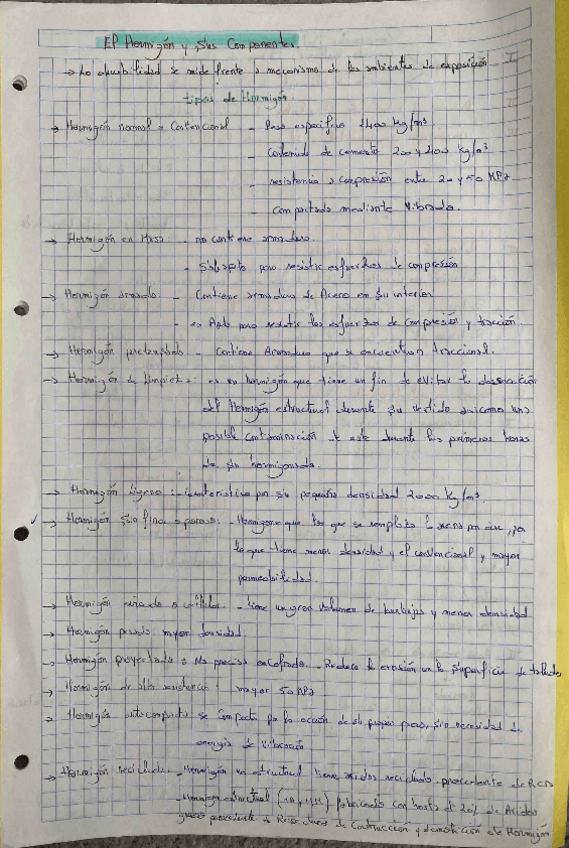 El Hormigón y sus Componentes.
→ La durabilidad se mide frente a mecanismo de los ambientes de exposición
tipos de Hormigón
→ Hormigón normal o Convencional - Peso especifico 2400 Kg/m³
- Contenido de cemento 200 y 400 Kg/m³
- resistencia a compresión entre 20 y 50 MPa
- Compactado mediante Vibrado.
→ Hormigón en Masa - no contiene armadura.
- Solo apto para resistir esfuerzos de compresión
→ Hormigón armado: - Contiene armadura de Acero en su interior
- es Apto para resistir los esfuerzos de Compresión y tracción.
→ Hormigón pretensado - Contiene Armadura que se encuentran traccional.
→ Hormigón de Limpieza: es un hormigón que tiene un fin de evitar la desecación
del Hormigón estructural durante su vertido asi como una
posible contaminación de este durante las primeras horas
de su hormigonado.
→ Hormigón Ligero: - característica por su pequeña densidad 2000 Kg/m³.
→ Hormigón sin finos o poroso: - Hormigón que
lo que tiene menor densidad y el convencional y mayor
permeabilidad.
→ Hormigón - tiene un gran volumen de burbujas y menor densidad
→ Hormigón pesado mayor densidad.
→ Hormigón proyectado: No precisa encofrado. - Reduce la erosión en la superficie de taludes
→ Hormigón de alta resistencia: mayor 50 MPa
→ Hormigón autocompacto se compacta por la acción de su propio peso, sin necesidad de
energía de Vibración
→ Hormigón reciclado. - Hormigón no estructural tiene áridos reciclado procedente de RCD
- Hormigón estructural fabricado con hasta el 20% de Aridos
grueso procedente de Residuos de Construcción y demolición de Hormigón